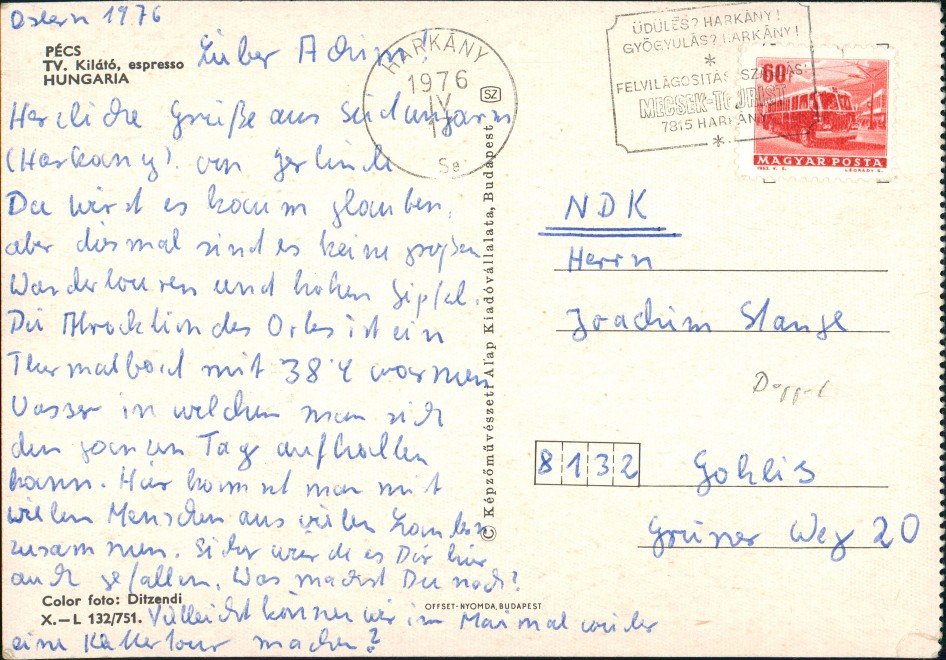 Ostern 1976
PÉCS
TV. Kilátó, espresso
HUNGARIA
Lieber Achim!
Herzliche Grüße aus Südungarn
(Harkany) von Gerlinde
Du wirst es kaum glauben,
aber diesmal sind es keine großen
Wandertouren und hohen Gipfel.
Die Attraktion des Ortes ist ein
Thermalbad mit 38°C warmen
Wasser in welchen man sich
den ganzen Tag aufhalten
kann. Hier kommt man mit
vielen Menschen aus vielen Ländern
zusammen. Sicher würde es Dir hier
auch gefallen. Was machst Du noch?
Color foto: Ditzendi
X.—L 132/751.
Vielleicht können wir im Mai mal wieder
eine Klettertour machen?
OFFSET-NYOMDA, BUDAPEST
© Képzőművészeti Alap Kiadóvállalata, Budapest
HARKÁNY
1976
IV
SZ
ÜDÜLÉS? HARKÁNY!
GYÓGYULÁS? HARKÁNY!
*
FELVILÁGOSÍTÁS, SZÁLLÁS:
MECSEK-TOURIST
7815 HARKÁNY
*
60f
MAGYAR POSTA
LÉGRÁDY S.
NDK
Herrn
Joachim Stange
8132 Gohlis
Grüner Weg 20